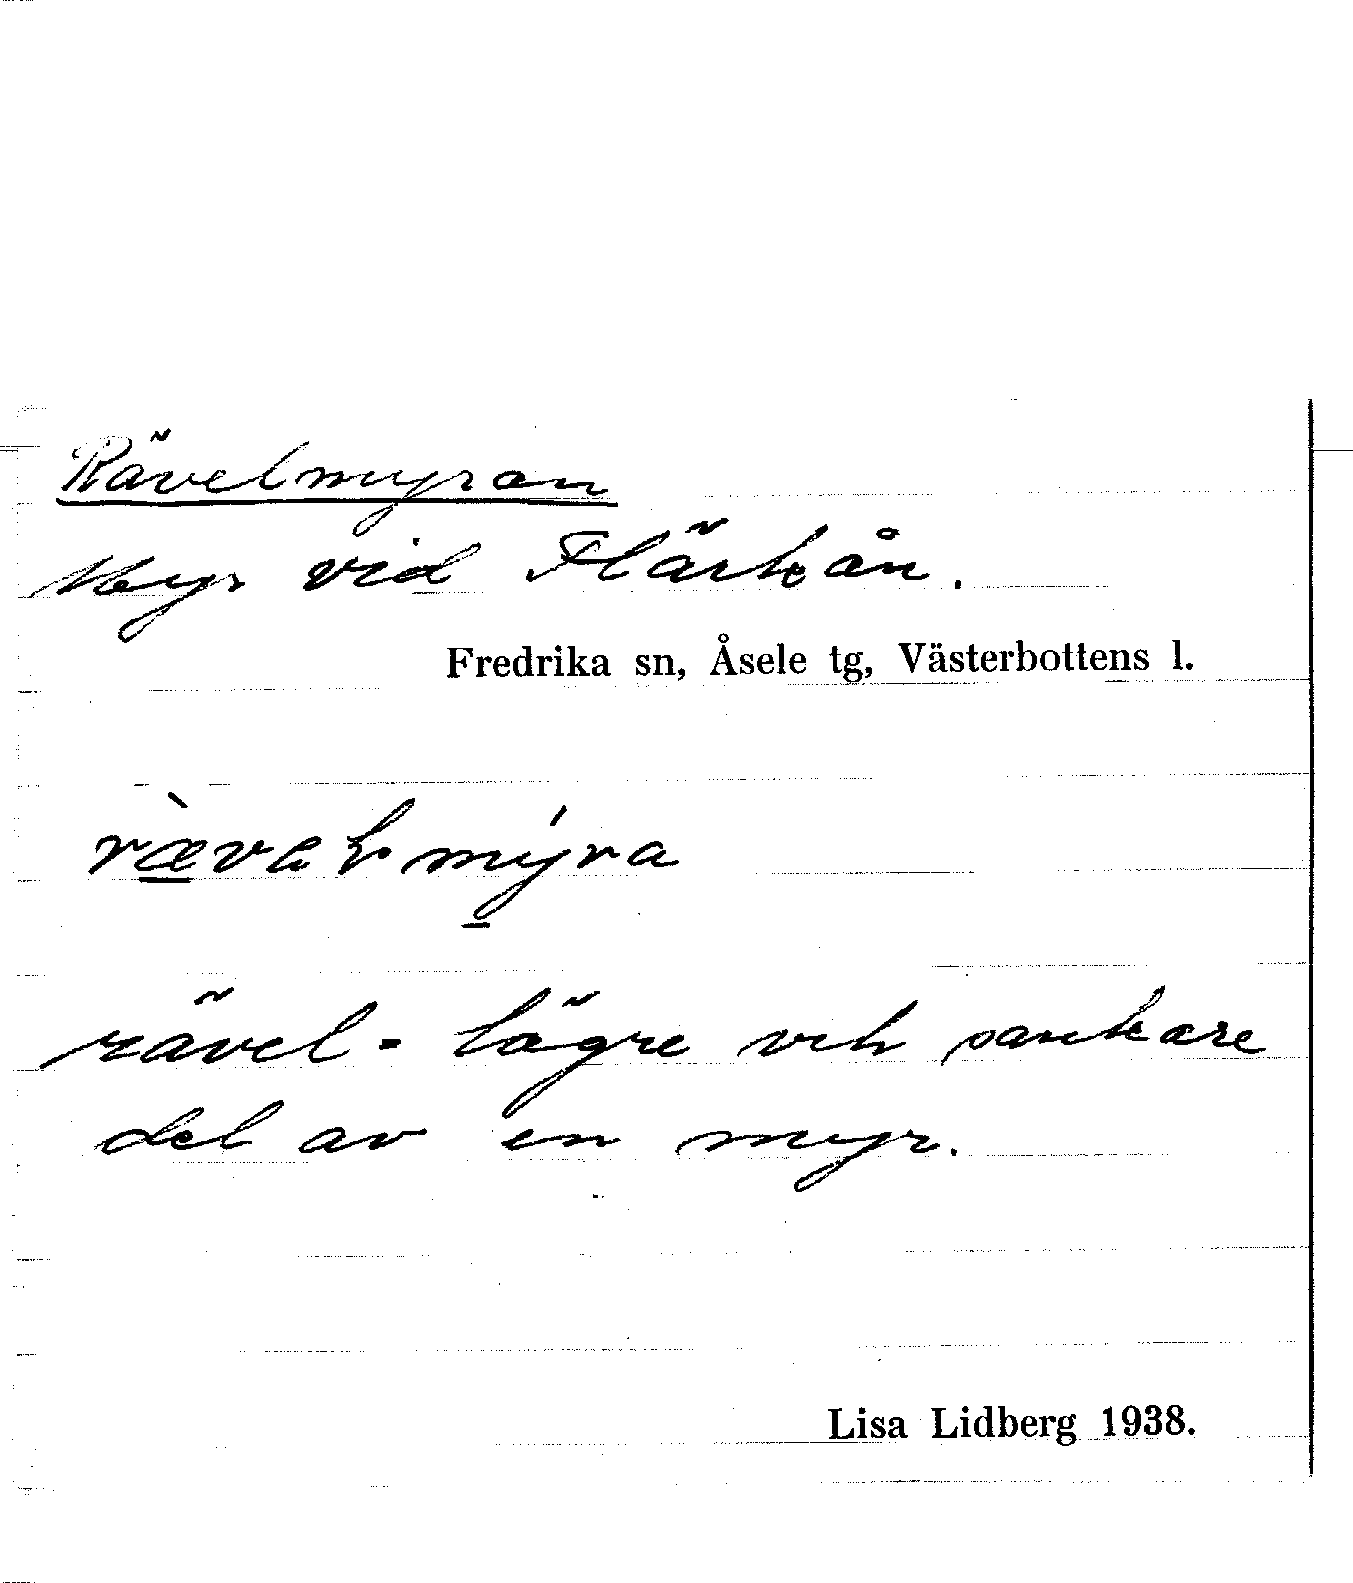 Rävelmyran
Myr vid Flärkån.
Fredrika sn, Åsele tg, Västerbottens l.
rævalmýra
rävel = lägre och sankare
del av en myr.
Lisa Lidberg 1938.